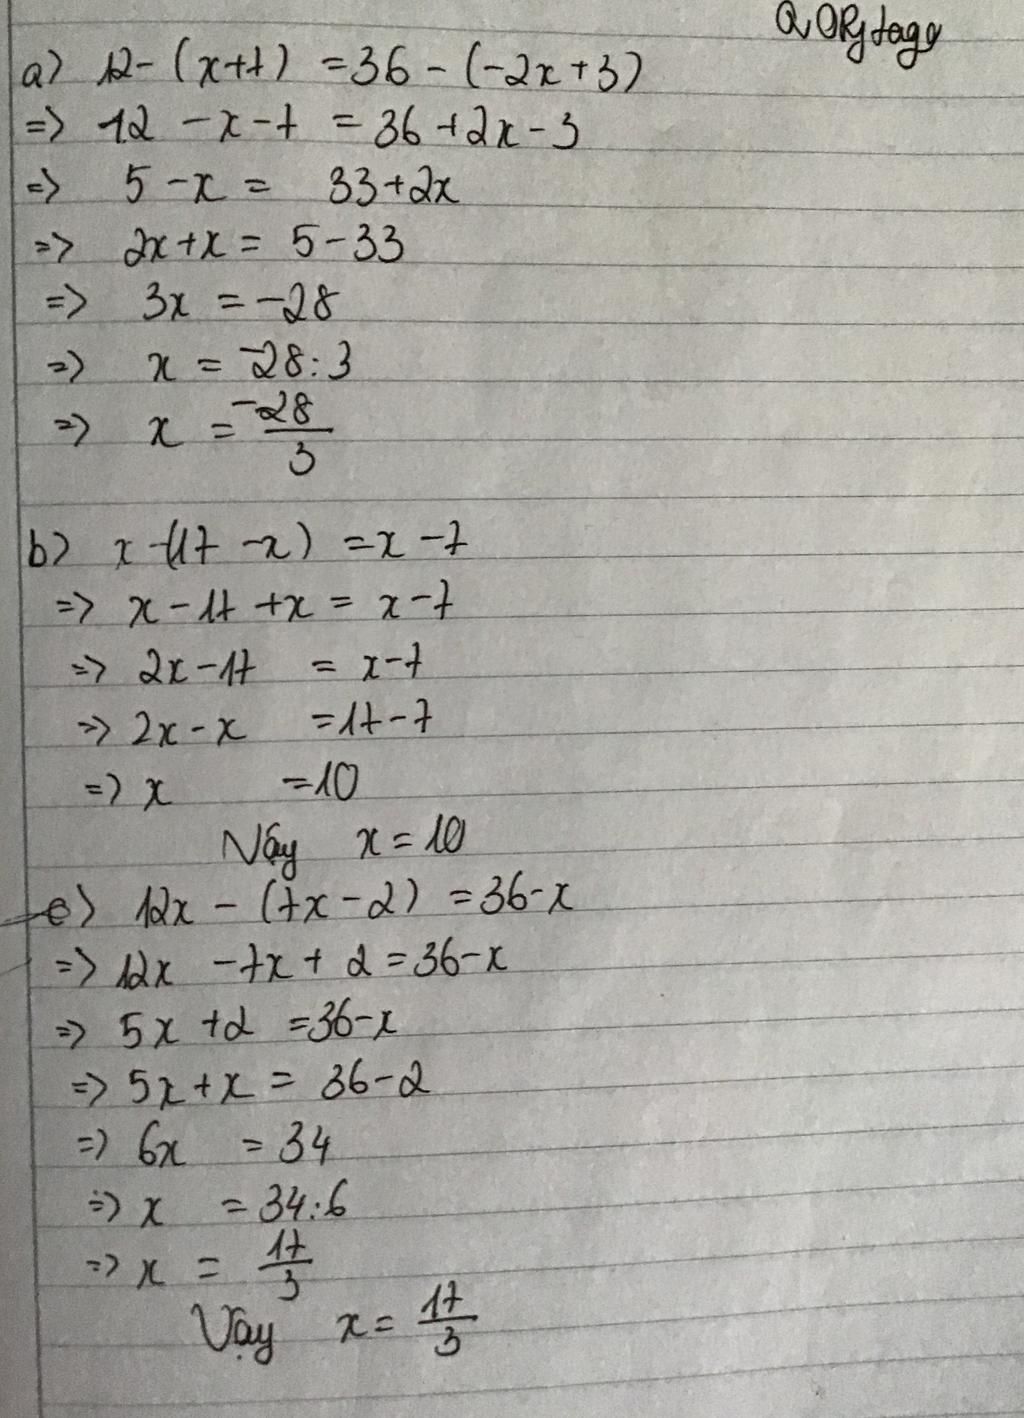 QORjtage
a) 12 - (x+7) = 36 - (-2x+3)
=> 12 - x - 7 = 36 + 2x - 3
=> 5 - x = 33 + 2x
=> 2x + x = 5 - 33
=> 3x = -28
=> x = -28 : 3
=> x = -28/3
b) x - (17 - x) = x - 7
=> x - 17 + x = x - 7
=> 2x - 17 = x - 7
=> 2x - x = 17 - 7
=> x = 10
Vậy x = 10
e) 12x - (7x - 2) = 36 - x
=> 12x - 7x + 2 = 36 - x
=> 5x + 2 = 36 - x
=> 5x + x = 36 - 2
=> 6x = 34
=> x = 34 : 6
=> x = 17/3
Vậy x = 17/3